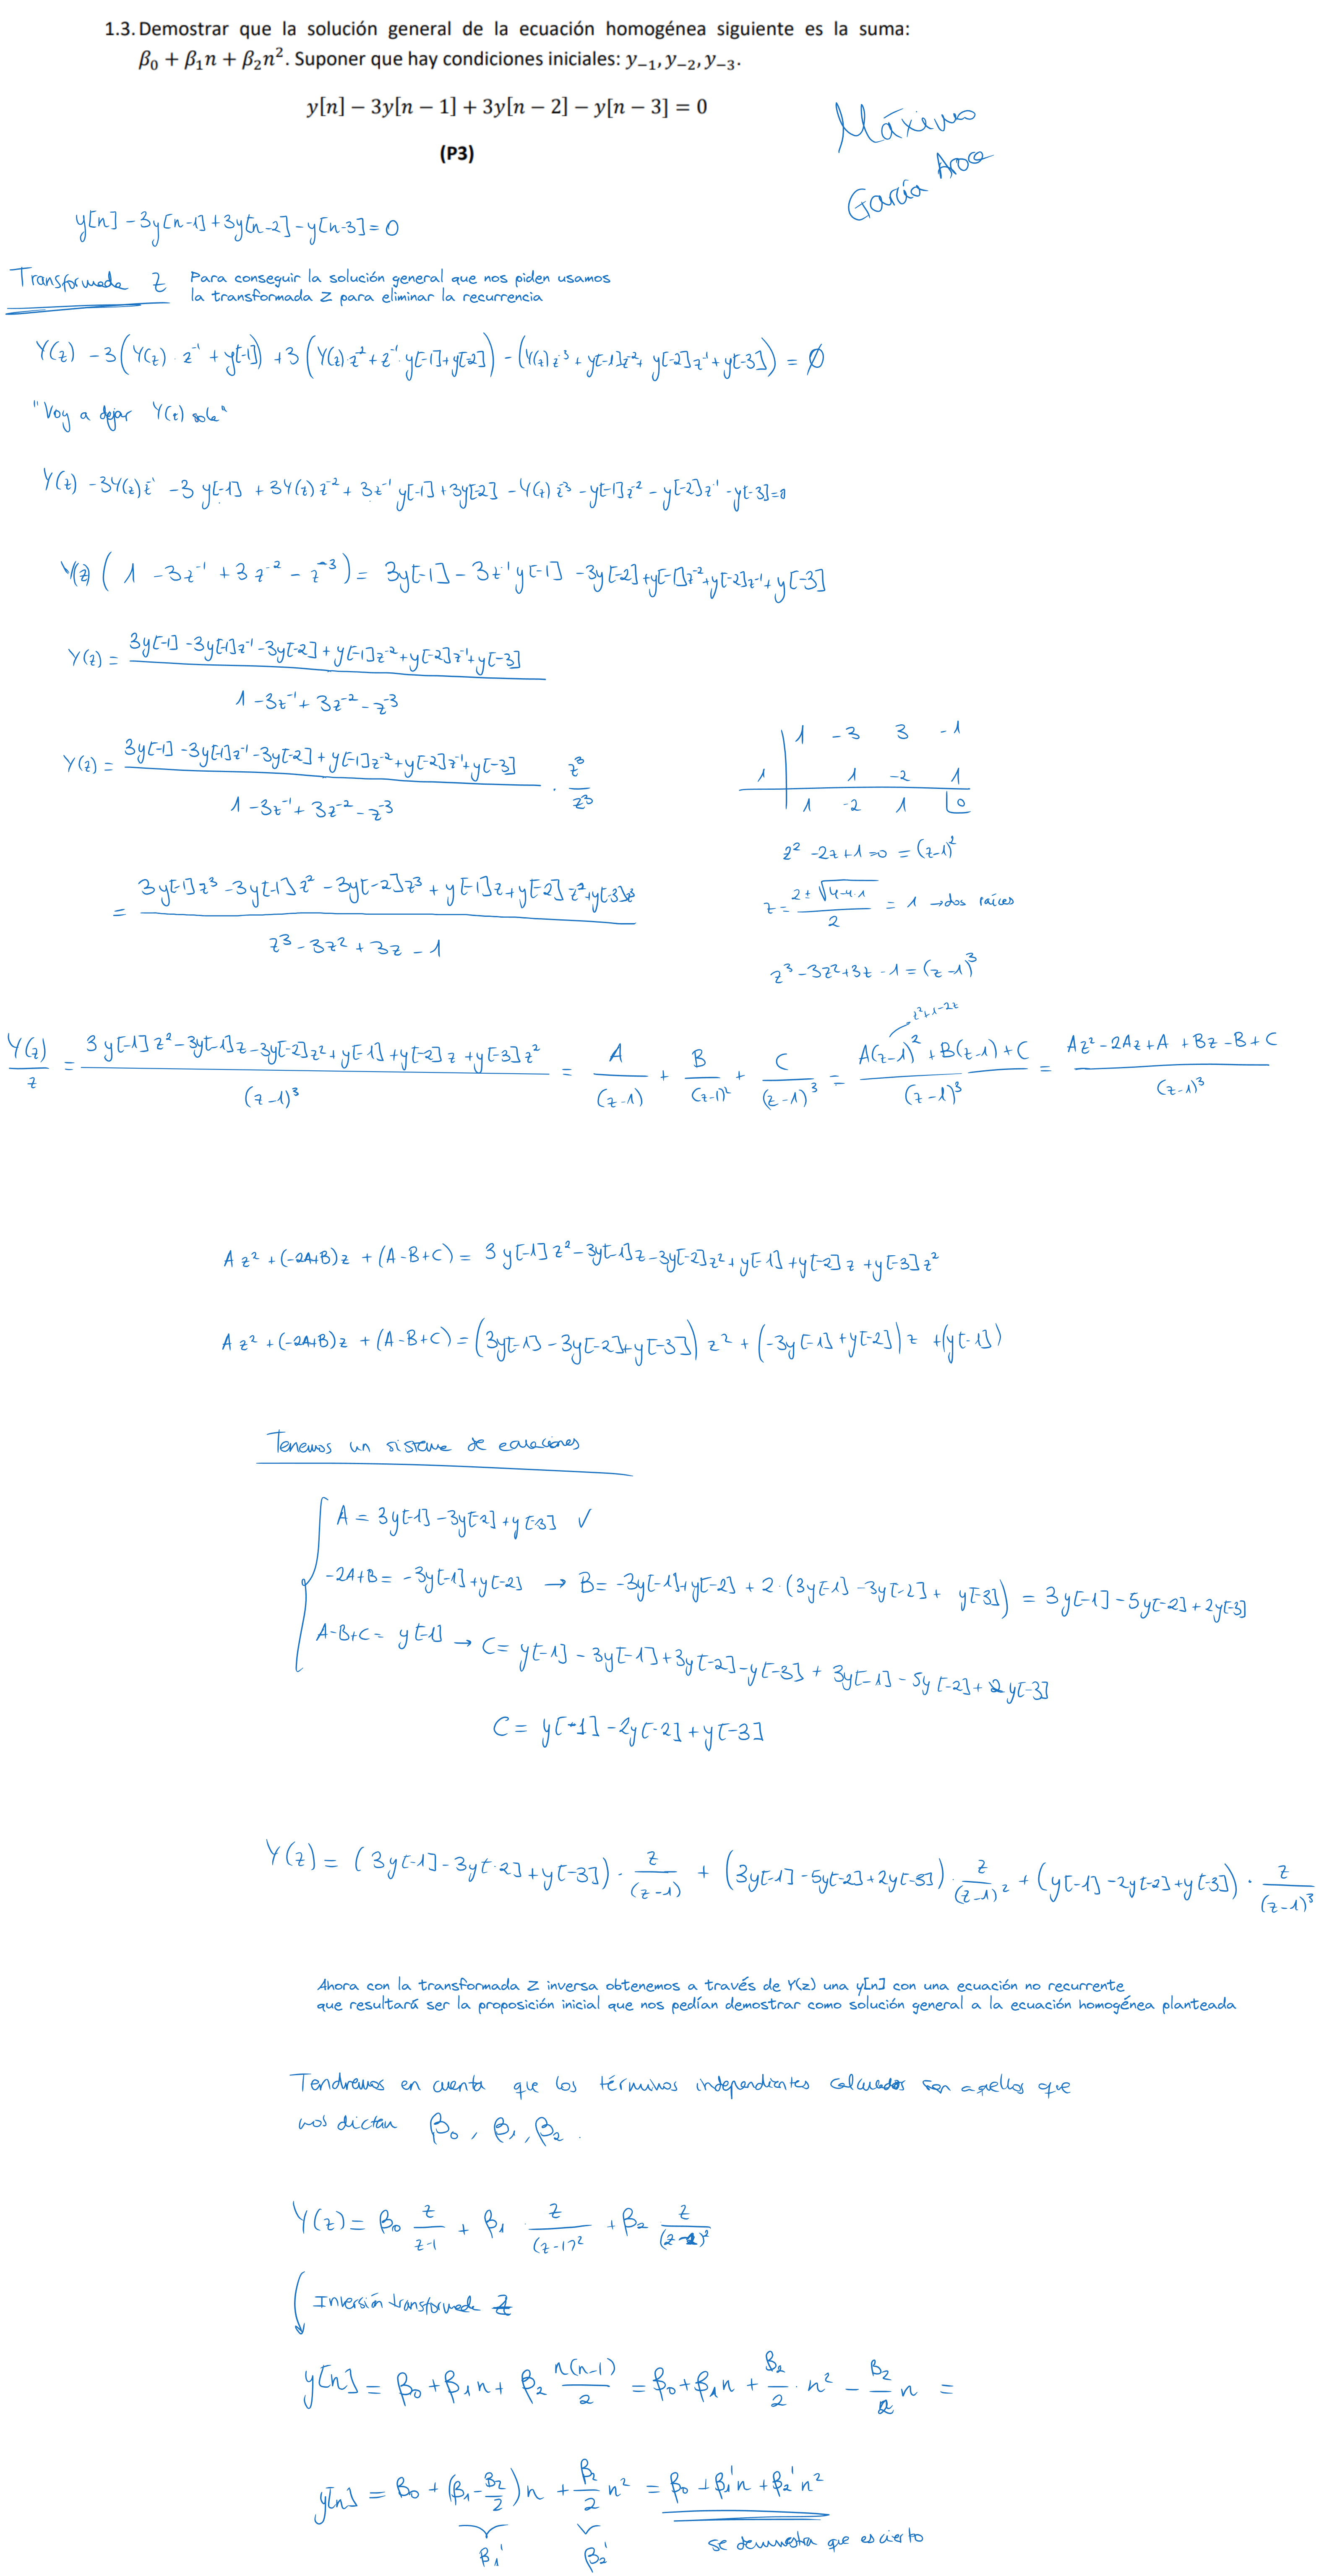 1.3. Demostrar que la solución general de la ecuación homogénea siguiente es la suma:
β₀ + β₁n + β₂n². Suponer que hay condiciones iniciales: y₋₁, y₋₂, y₋₃.
y[n] − 3y[n − 1] + 3y[n − 2] − y[n − 3] = 0
(P3)
Máximo
García Aroca
y[n] -3y[n-1]+3y[n-2]-y[n-3]=0
Transformada Z
Para conseguir la solución general que nos piden usamos
la transformada Z para eliminar la recurrencia
Y(z) -3(Y(z)·z⁻¹+y[-1]) +3(Y(z)·z⁻²+z⁻¹·y[-1]+y[-2]) -(Y(z)z⁻³+y[-1]z⁻²+y[-2]z⁻¹+y[-3]) = ∅
"Voy a dejar Y(z) sola"
Y(z) -3Y(z)z⁻¹ -3y[-1] +3Y(z)z⁻²+3z⁻¹y[-1]+3y[-2] -Y(z)z⁻³ -y[-1]z⁻² -y[-2]z⁻¹ -y[-3]=0
Y(z)(1 -3z⁻¹ +3z⁻² -z⁻³) = 3y[-1] -3z⁻¹y[-1] -3y[-2]+y[-1]z⁻²+y[-2]z⁻¹+y[-3]
Y(z) = 3y[-1] -3y[-1]z⁻¹ -3y[-2]+y[-1]z⁻²+y[-2]z⁻¹+y[-3]
1 -3z⁻¹+3z⁻² -z⁻³
Y(z) = 3y[-1] -3y[-1]z⁻¹ -3y[-2]+y[-1]z⁻²+y[-2]z⁻¹+y[-3] · z³
1 -3z⁻¹+3z⁻² -z⁻³ z³
1 -3 3 -1
1 1 -2 1
1 -2 1 0
z² -2z+1=0 = (z-1)²
= 3y[-1]z³ -3y[-1]z² -3y[-2]z³+y[-1]z+y[-2]z²+y[-3]z³
z³ -3z²+3z -1
z = 2±√4-4·1 = 1 →dos raíces
2
z³ -3z²+3z -1 = (z-1)³
z²+1-2z
Y(z) = 3y[-1]z² -3y[-1]z -3y[-2]z²+y[-1]+y[-2]z+y[-3]z² = A + B + C = A(z-1)²+B(z-1)+C = Az² -2Az+A+Bz -B+C
z (z-1)³ (z-1) (z-1)² (z-1)³ (z-1)³ (z-1)³
Az²+(-2A+B)z+(A-B+C) = 3y[-1]z² -3y[-1]z -3y[-2]z²+y[-1]+y[-2]z+y[-3]z²
Az²+(-2A+B)z+(A-B+C) = (3y[-1] -3y[-2]+y[-3])z²+(-3y[-1]+y[-2])z+(y[-1])
Tenemos un sistema de ecuaciones
A = 3y[-1] -3y[-2]+y[-3] ✓
-2A+B = -3y[-1]+y[-2] → B = -3y[-1]+y[-2]+2·(3y[-1] -3y[-2]+y[-3]) = 3y[-1] -5y[-2]+2y[-3]
A-B+C = y[-1] → C = y[-1] -3y[-1]+3y[-2] -y[-3]+3y[-1] -5y[-2]+2y[-3]
C = y[-1] -2y[-2]+y[-3]
Y(z) = (3y[-1] -3y[-2]+y[-3])· z + (3y[-1] -5y[-2]+2y[-3])· z + (y[-1] -2y[-2]+y[-3])· z
(z-1) (z-1)² (z-1)³
Ahora con la transformada Z inversa obtenemos a través de Y(z) una y[n] con una ecuación no recurrente
que resultará ser la proposición inicial que nos pedían demostrar como solución general a la ecuación homogénea planteada
Tendremos en cuenta que los términos independientes calculados son aquellos que
nos dictan β₀, β₁, β₂.
Y(z) = β₀ z + β₁ · z + β₂ z
z-1 (z-1)² (z-1)²
Inversión transformada Z
y[n] = β₀+β₁n+β₂ n(n-1) = β₀+β₁n+ β₂ ·n² - β₂ n =
2 2 2
y[n] = β₀+(β₁- β₂)n+ β₂ n² = β₀+β₁'n+β₂'n²
2 2
β₁' β₂'
se demuestra que es cierto